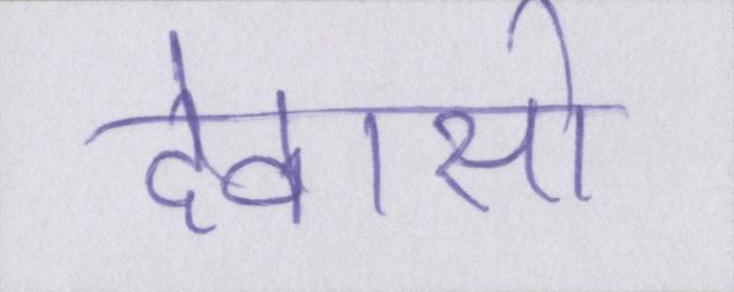 देवासी